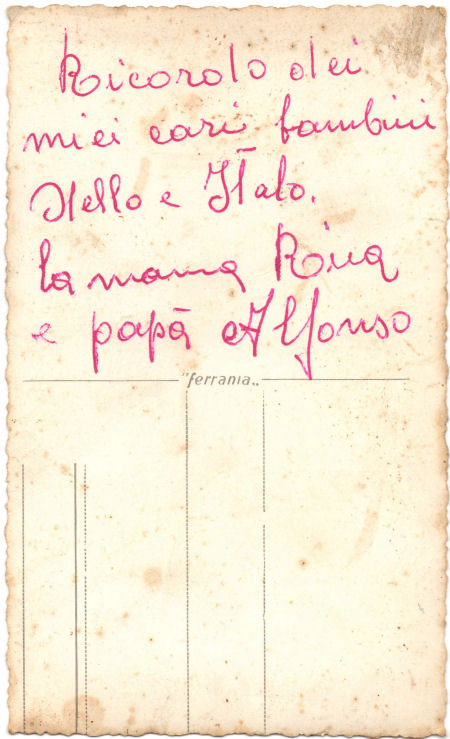 Ricordo dei
miei cari bambini
Nello e Italo.
la mama Rina
e papà Alfonso
"ferrania„